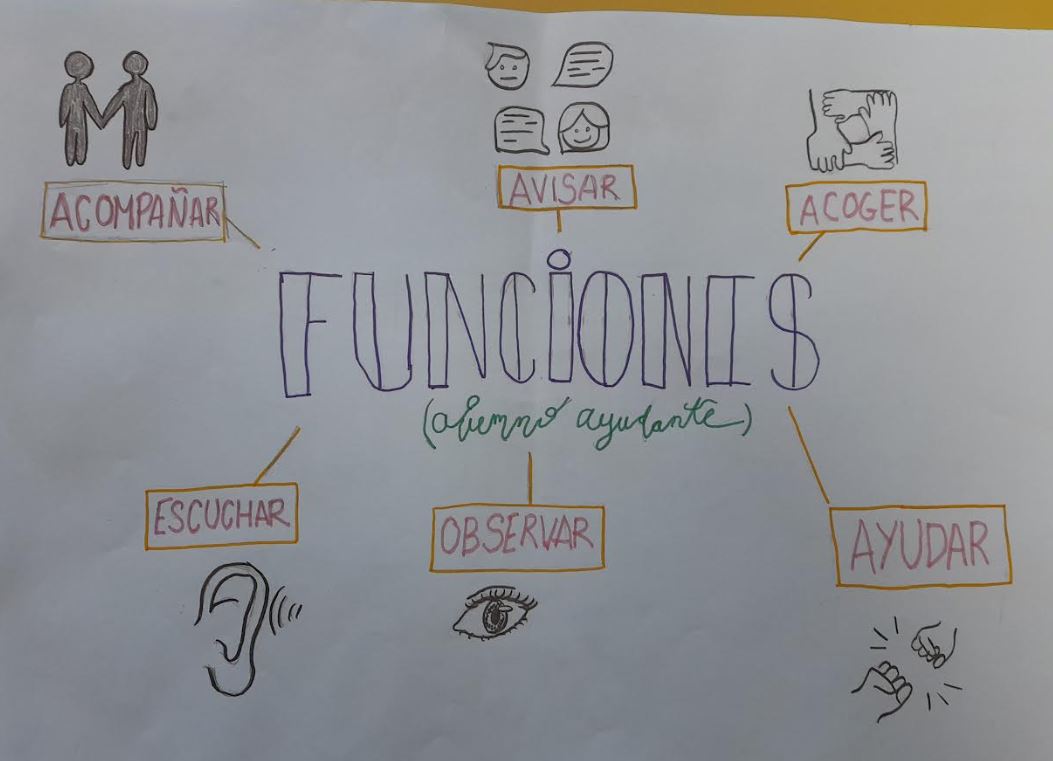 ACOMPAÑAR
AVISAR
ACOGER
FUNCIONES
(alumno ayudante)
ESCUCHAR
OBSERVAR
AYUDAR